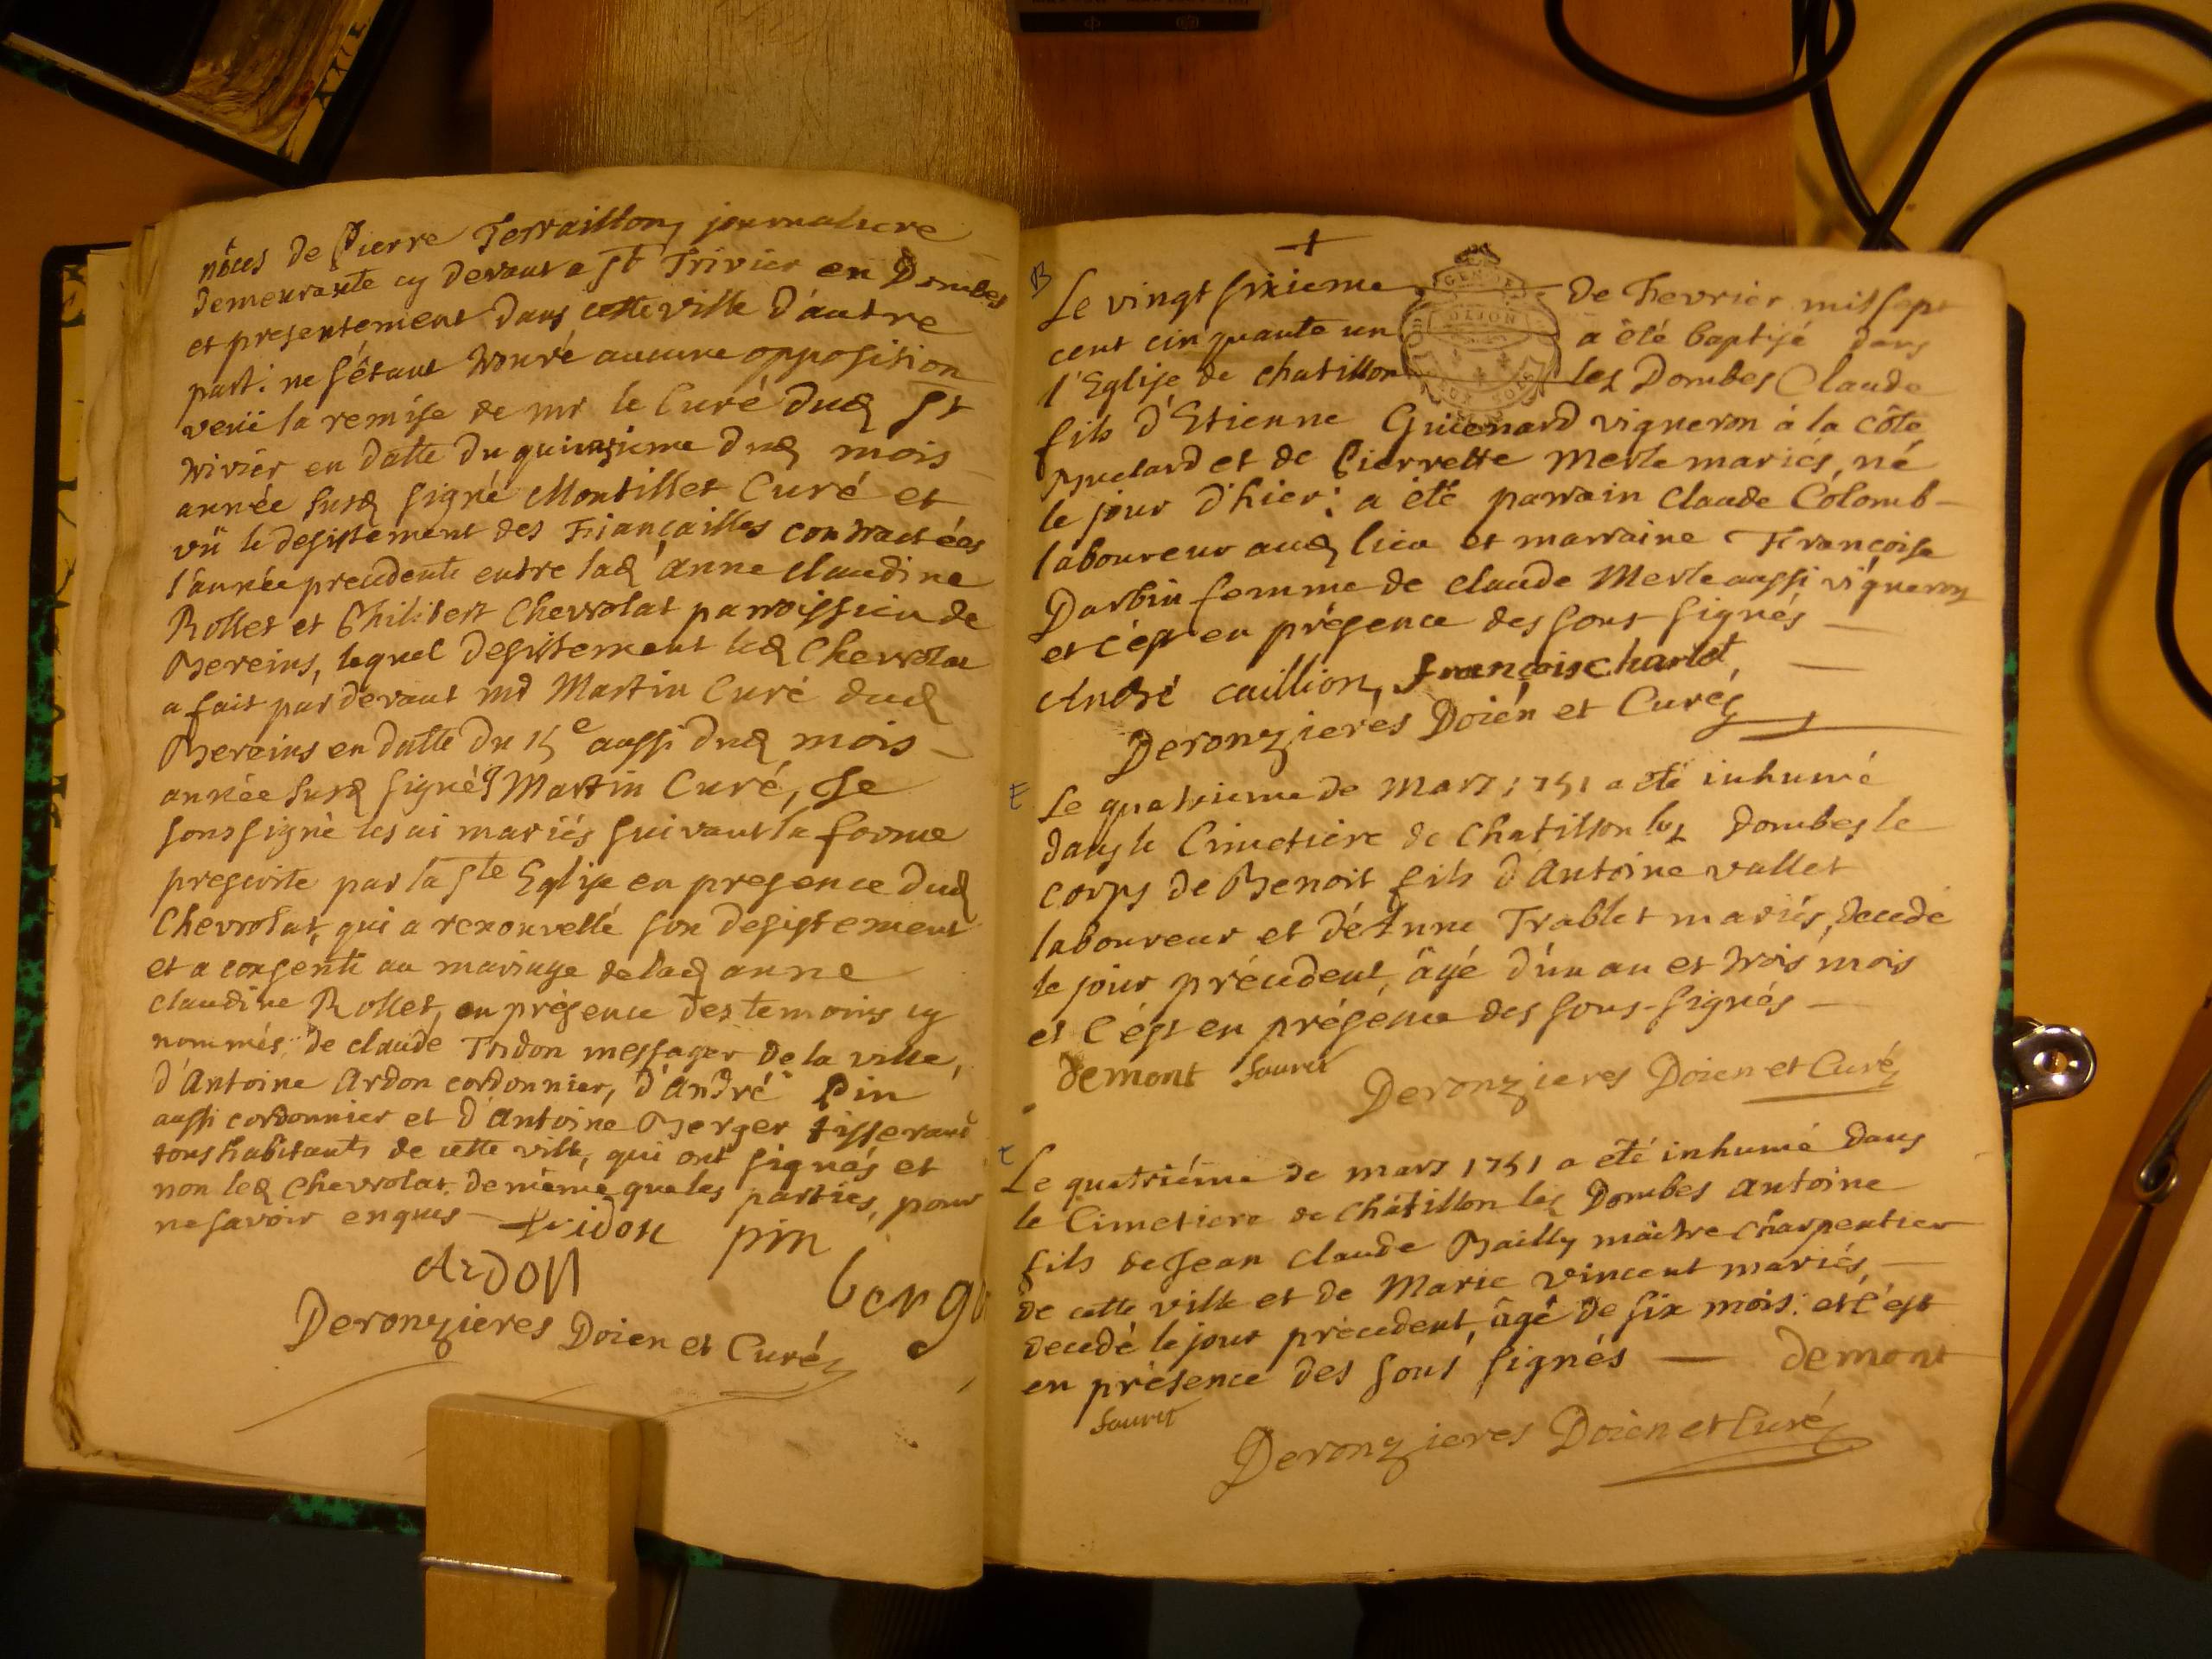 nôces de Pierre Terraillon, journaliere
demeurante cy devant a St Trivier en Dombes
et presentement dans cette ville d'autre
part: ne s'étant trouvé aucune opposition
veüe la remise de mr le Curé dud St
trivier en datte du quinzieme dud mois
année susd signé Montillet Curé et
vü le desistement des Fiançailles contractées
l'année precedente entre lad anne claudine
Rollet et Philibert Chevrolat paroissien de
Bereins, lequel desistement led Chevrolat
a fait pardevant mr Martin Curé dud
Bereins en datte du 15e aussi dud mois
année susd signé Martin Curé, Je
soussigné les ai mariés suivant la forme
prescrite par la Ste Eglise en presence dud
Chevrolat, qui a renouvellé son desistement
et a consenti au mariage de lad anne
claudine Rollet, en présence des temoins cy
nommés, de claude Tridon messager de la ville,
d'Antoine Ardon cordonnier, d'André Pin
aussi cordonnier et d'Antoine Berger tisserand
tous habitants de cette ville, qui ont signés et
non led Chevrolat de même que les parties, pour
ne savoir enquis
tridon pin
Ardon
berge
Deronzieres Doien et Curé
B
Le vingt sixieme de Fevrier mil sept
cent cinquante un a été baptisé dans
l'Eglise de chatillon les Dombes Claude
fils d'Etienne Guienard vigneron à la côte
Muclard et de Pierrette Merle mariés, né
le jour d'hier: a été parrain Claude Colomb
laboureur aud lieu et marraine Françoise
Darbin femme de claude Merle aussi vigneron
et c'est en présence des sous signés
André caillion, françois charlot,
Deronzieres Doien et Curé
E
Le quatrieme de Mars 1751 a été inhumé
dans le Cimetiere de Chatillon les Dombes le
corps de Benoit fils d'Antoine vallet
laboureur et de Anne Trablet mariés, decedé
le jour précedent, âgé d'un an et trois mois
et c'est en présence des sous-signés
demont fauret
Deronzieres Doien et Curé
E
Le quatriéme de mars 1751 a été inhumé dans
le Cimetiere de châtillon les Dombes antoine
fils de Jean Claude Bailly maitre charpentier
de cette ville et de Marie Vincent mariés,
decedé le jour précedent, âgé de six mois: et c'est
en présence des sous signés demont
fauret
Deronzieres Doien et Curé